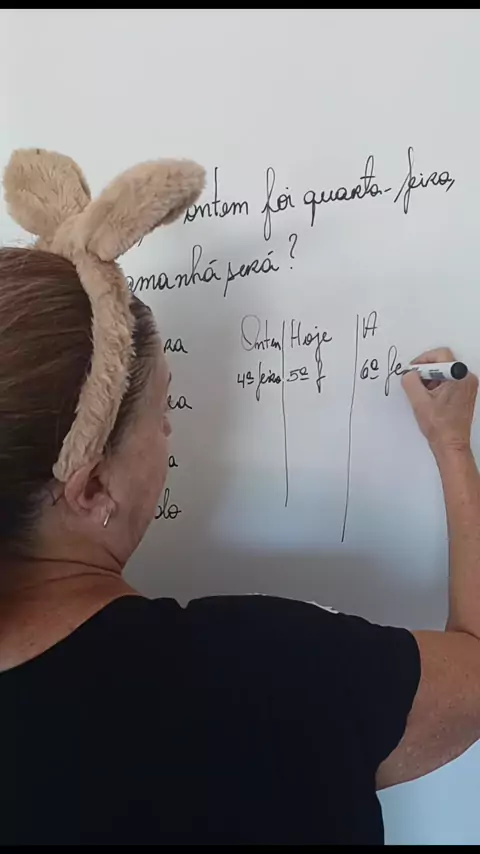 ontem foi quarta-feira,
amanhã será?
Ontem Hoje A
4ª feira 5ª f 6ª fe